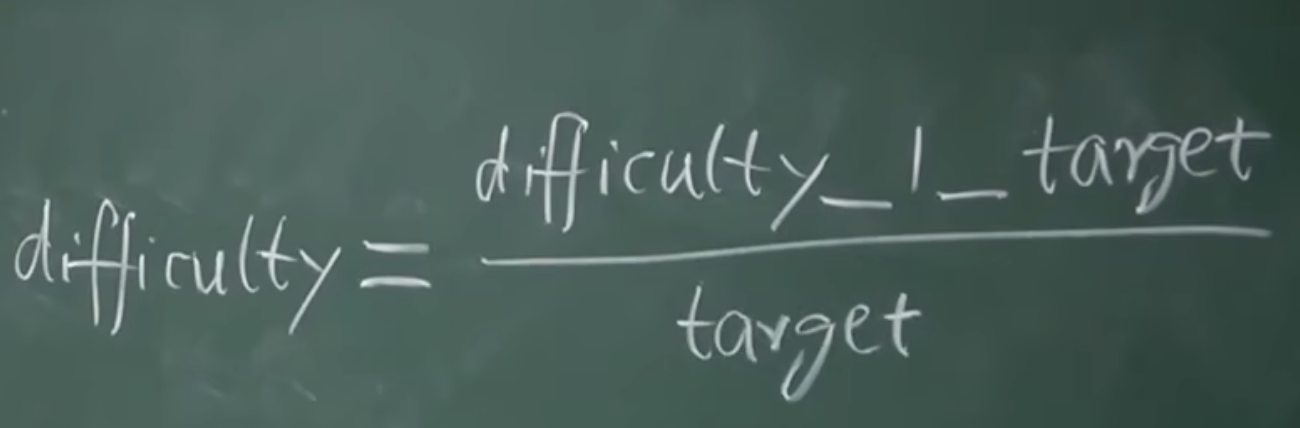 difficulty = difficulty_1_target
target